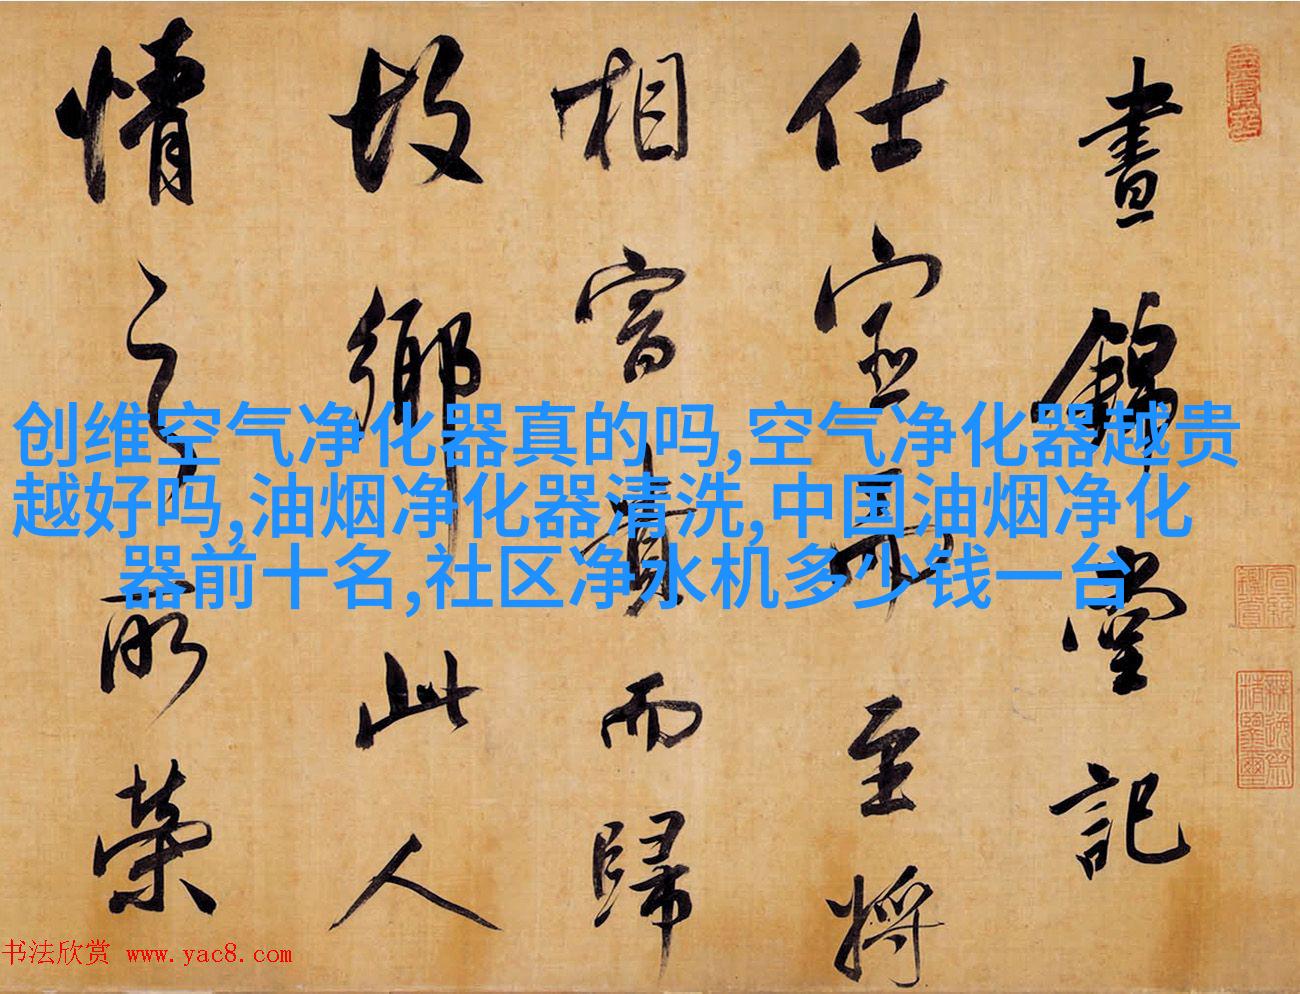 晝錦堂記
仕宦而至將
相富貴而歸
故鄉此人
情之所榮
创维空气净化器真的吗,空气净化器越贵
越好吗,油烟净化器清洗,中国油烟净化
器前十名,社区净水机多少钱一台
书法欣赏 www.yac8.com